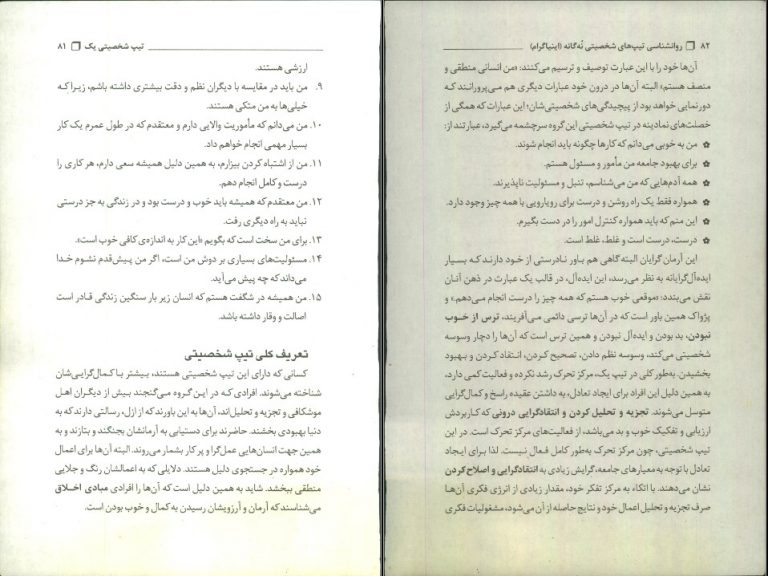 تیپ شخصیتی یک ❐ ۸۱
ارزشی هستند.
۹. من باید در مقایسه با دیگران نظم و دقت بیشتری داشته باشم، زیرا که
خیلی‌ها به من متکی هستند.
۱۰. من می‌دانم که مأموریت والایی دارم و معتقدم که در طول عمرم یک کار
بسیار مهمی انجام خواهم داد.
۱۱. من از اشتباه کردن بیزارم، به همین دلیل همیشه سعی دارم، هر کاری را
درست و کامل انجام دهم.
۱۲. من معتقدم که همیشه باید خوب و درست بود و در زندگی به جز درستی
نباید به راه دیگری رفت.
۱۳. برای من سخت است که بگویم «این کار به اندازه‌ی کافی خوب است».
۱۴. مسئولیت‌های بسیاری بر دوش من است، اگر من پیش‌قدم نشوم خدا
می‌داند که چه پیش می‌آید.
۱۵. من همیشه در شگفت هستم که انسان زیر بار سنگین زندگی قادر است
اصالت و وقار داشته باشد.
تعریف کلی تیپ شخصیتی
کسانی که دارای این تیپ شخصیتی هستند، بیشتر با کمال‌گرایی‌شان
شناخته می‌شوند. افرادی که در این گروه می‌گنجند بیش از دیگران اهل
موشکافی و تجزیه و تحلیل‌اند، آن‌ها به این باورند که از ازل، رسالتی دارند که به
دنیا بهبودی بخشند. حاضرند برای دستیابی به آرمانشان بجنگند و بتازند و به
همین جهت انسان‌هایی عمل‌گرا و پر کار بشمار می‌روند. البته آن‌ها برای اعمال
خود همواره در جستجوی دلیل هستند. دلایلی که به اعمالشان رنگ و جلایی
منطقی ببخشد. شاید به همین دلیل است که آن‌ها را افرادی مبادی اخلاق
می‌شناسند که آرمان و آرزویشان رسیدن به کمال و خوب بودن است.
۸۲ ❐ روانشناسی تیپ‌های شخصیتی نُه‌گانه (اینیاگرام)
آن‌ها خود را با این عبارت توصیف و ترسیم می‌کنند: «من انسانی منطقی و
منصف هستم» البته آن‌ها در درون خود عبارات دیگری هم می‌پرورانند که
دورنمایی خواهد بود از پیچیدگی‌های شخصیتی‌شان؛ این عبارات که همگی از
خصلت‌های نمادینه در تیپ شخصیتی این گروه سرچشمه می‌گیرد، عبارتند از:
✿ من به خوبی می‌دانم که کارها چگونه باید انجام شوند.
✿ برای بهبود جامعه من مأمور و مسئول هستم.
✿ همه آدم‌هایی که من می‌شناسم، تنبل و مسئولیت ناپذیرند.
✿ همواره فقط یک راه روشن و درست برای رویارویی با همه چیز وجود دارد.
✿ این منم که باید همواره کنترل امور را در دست بگیرم.
✿ درست، درست است و غلط، غلط است.
این آرمان گرایان البته گاهی هم باور نادرستی از خود دارند که بسیار
ایده‌آل‌گرایانه به نظر می‌رسد، این ایده‌آل، در قالب یک عبارت در ذهن آنان
نقش می‌بندد: «موقعی خوب هستم که همه چیز را درست انجام می‌دهم» و
پژواک همین باور است که در آن‌ها ترسی دائمی می‌آفریند، ترس از خوب
نبودن، بد بودن و ایده‌آل نبودن و همین ترس است که آن‌ها را دچار وسوسه
شخصیتی می‌کند، وسوسه نظم دادن، تصحیح کردن، انتقاد کردن و بهبود
بخشیدن. به‌طور کلی در تیپ یک، مرکز تحرک رشد نکرده و فعالیت کمی دارد،
به همین دلیل این افراد برای ایجاد تعادل، به داشتن عقیده راسخ و کمال‌گرایی
متوسل می‌شوند. تجزیه و تحلیل کردن و انتقادگرایی درونی که کاربردش
ارزیابی و تفکیک خوب و بد می‌باشد، از فعالیت‌های مرکز تحرک است. در این
تیپ شخصیتی، چون مرکز تحرک به‌طور کامل فعال نیست. لذا برای ایجاد
تعادل با توجه به معیارهای جامعه، گرایش زیادی به انتقادگرایی و اصلاح کردن
نشان می‌دهند. با اتکاء به مرکز تفکر خود، مقدار زیادی از انرژی فکری آن‌ها
صرف تجزیه و تحلیل اعمال خود و نتایج حاصله از آن می‌شود، مشغولیات فکری